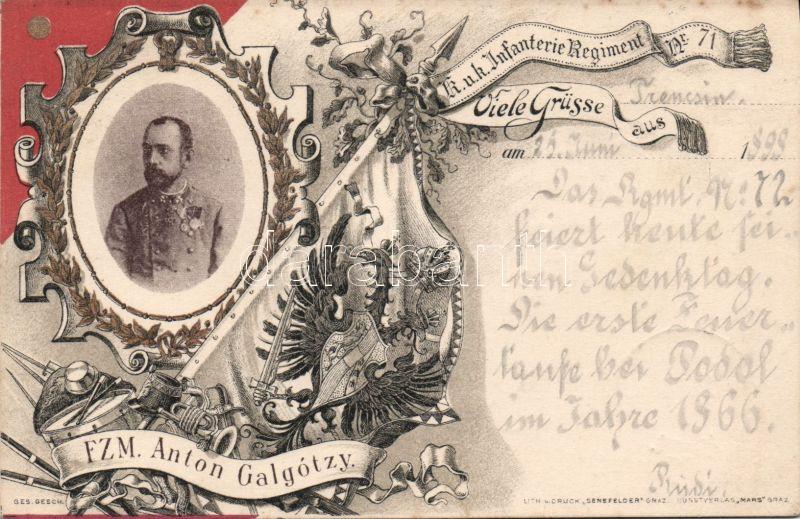 K.u.k. Infanterie Regiment Nr. 71
Viele Grüsse aus
Trencsin.
am 25. Juni 1898
Das Rgmt. No: 72
feiert heute sei-
nen Gedenktag.
Die erste Feuer-
taufe bei Podol
im Jahre 1866.
Rudi
FZM. Anton Galgótzy.
GES. GESCH.
LITH. u. DRUCK „SENEFELDER" GRAZ. KUNSTVERLAG „MARS" GRAZ
darabanth.com